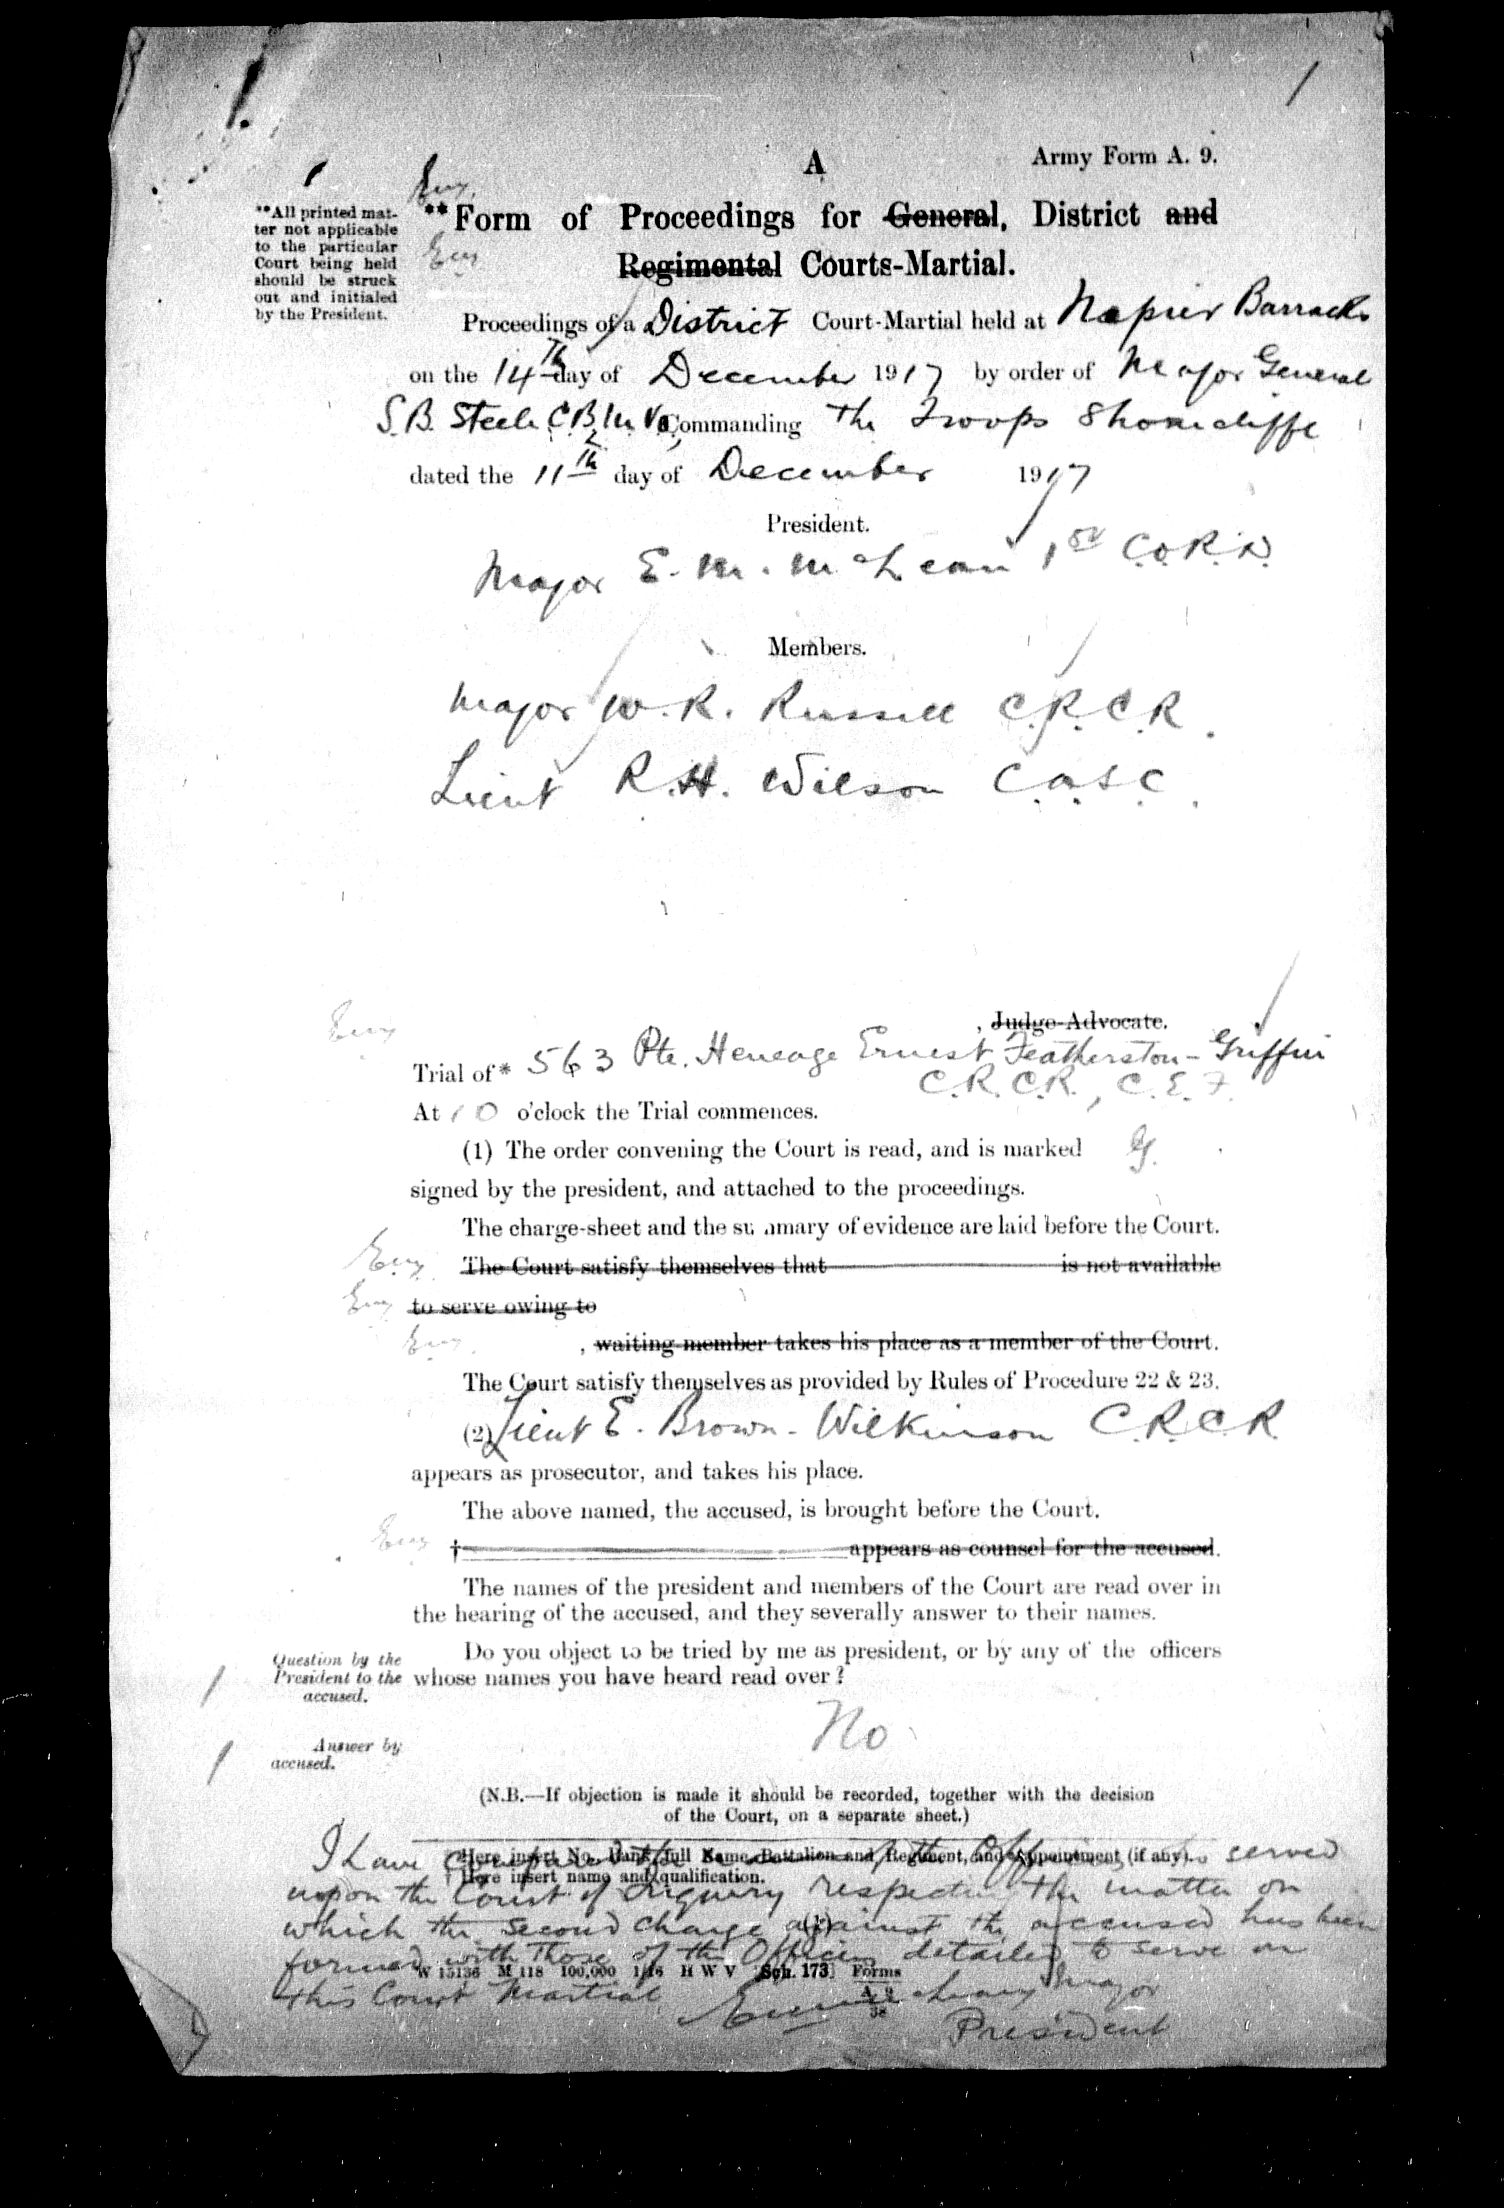 1
A
Army Form A. 9.
**All printed mat-
ter not applicable
to the particular
Court being held
should be struck
out and initialed
by the President.
**Form of Proceedings for General, District and
Regimental Courts-Martial.
Proceedings of a District Court-Martial held at Napier Barracks
on the 14th day of December 1917 by order of Major General
S.B. Steele C.B., M.V.O., Commanding the Troops Shorncliffe
dated the 11th day of December 1917
President.
Major E. M. McLean 1st C.O.R.D.
Members.
Major W. R. Russell C.R.C.R.
Lieut R.H. Wilson C.A.S.C.
, Judge-Advocate.
Trial of* 563 Pte. Heneage Ernest Featherston-Griffin
C.R.C.R., C.E.F.
At 10 o'clock the Trial commences.
(1) The order convening the Court is read, and is marked
signed by the president, and attached to the proceedings.
The charge-sheet and the su mary of evidence are laid before the Court.
The Court satisfy themselves that is not available
to serve owing to
, waiting member takes his place as a member of the Court.
The Court satisfy themselves as provided by Rules of Procedure 22 & 23.
(2) Lieut E. Brown-Wilkinson C.R.C.R.
appears as prosecutor, and takes his place.
The above named, the accused, is brought before the Court.
† appears as counsel for the accused.
The names of the president and members of the Court are read over in
the hearing of the accused, and they severally answer to their names.
Question by the
President to the
accused.
Do you object to be tried by me as president, or by any of the officers
whose names you have heard read over?
No
Answer by
accused.
(N.B.—If objection is made it should be recorded, together with the decision
of the Court, on a separate sheet.)
* Here insert No. Rank, full Name, Battalion and Regiment, and Appointment (if any).
† Here insert name and qualification.
I have compared the of the Officers who served
upon the Court of Inquiry respecting the matter on
which the second charge against the accused has been
formed with those of the Officers detailed to serve on
this Court Martial
(1)
W 15136 M 118 100,000 1/16 H W V Sch. 173 Forms
A. 9
38
Major
President